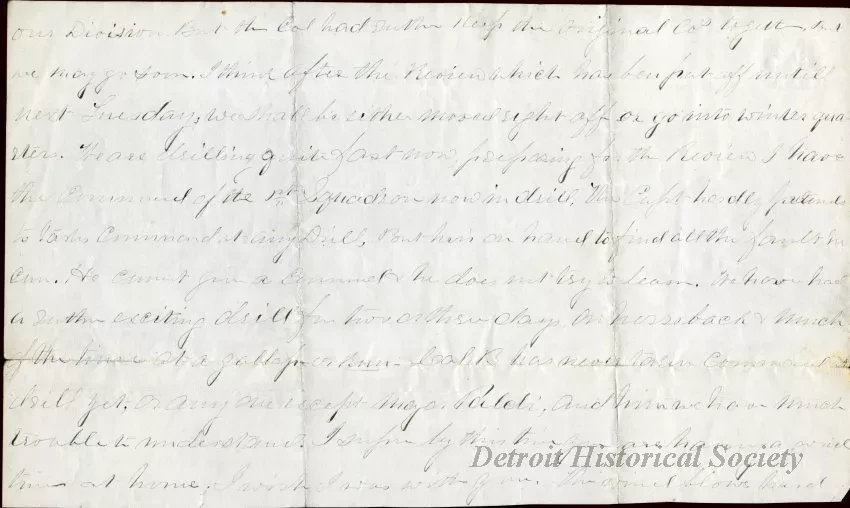 our Division But the Col had rather keep the original Cos together, but
we may go soon. I think after the Review which has ben put off untill
next Tuesday, we shall be either moved right off or go into winter qua
rters. We are drilling quite fast now, prepairing for the Review I have
the Command of the 1st Squadron now in drill, The Capt hardly pretends
to take Command at any Drill, But he is on hand to find all the faults he
can. He cannot give a Command & he does not try to learn. We have had
a rather exciting drill for two or three days on horseback & much
of the time at a gallop or Run - Col B has never taken Command at
drill yet, or any one except Major Paldi, and him we have much
trouble to understand. I supose by this time you are having a
time at home. I wish I was with you. The wind blows hard
Detroit Historical Society